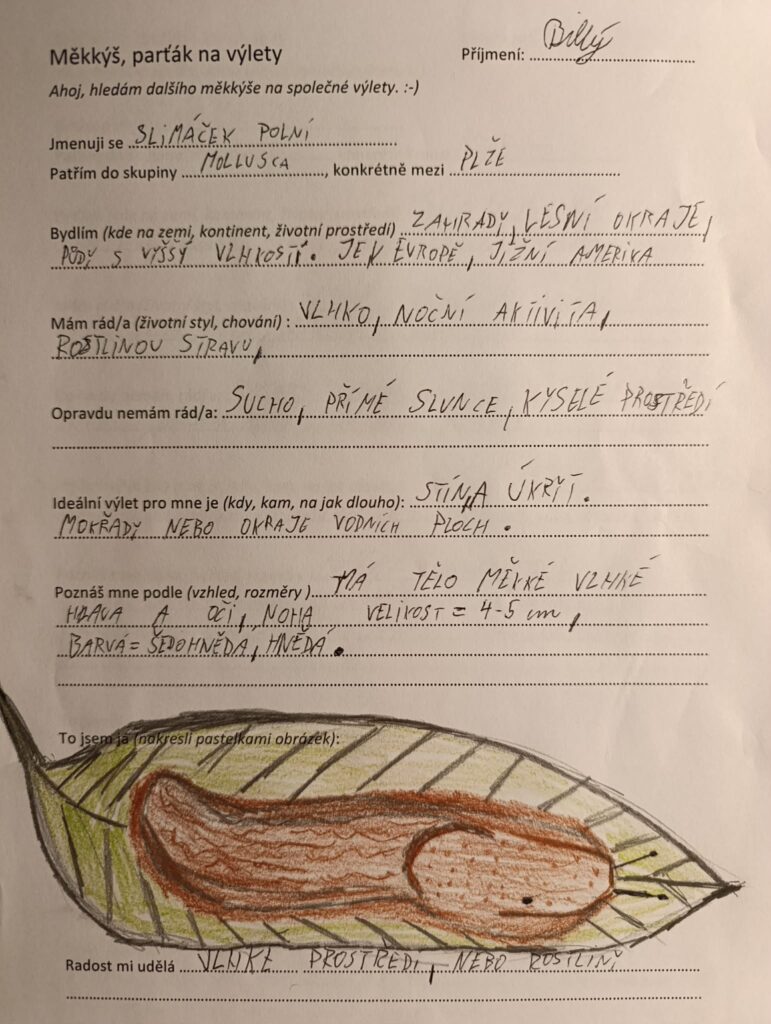 Měkkýš, parťák na výlety
Příjmení: Billý
Ahoj, hledám dalšího měkkýše na společné výlety. :-)
Jmenuji se SLIMÁČEK POLNÍ
Patřím do skupiny MOLLUSCA, konkrétně mezi PLŽE
Bydlím (kde na zemi, kontinent, životní prostředí) ZAHRADY, LESNÍ OKRAJE,
PŮDY S VYŠŠÝ VLHKOSTÍ. JE V EVROPĚ, JIŽNÍ AMERIKA
Mám rád/a (životní styl, chování) : VLHKO, NOČNÍ AKTIVITA,
ROSTLINOU STRAVU,
Opravdu nemám rád/a: SUCHO, PŘÍMÉ SLUNCE, KYSELÉ PROSTŘEDÍ
Ideální výlet pro mne je (kdy, kam, na jak dlouho): STÍN, A ÚKRÝT.
MOKŘADY NEBO OKRAJE VODNÍCH PLOCH.
Poznáš mne podle (vzhled, rozměry ) MÁ TĚLO MĚKKÉ VLHKÉ
HLAVA A OČI, NOHA VELIKOST = 4-5 cm,
BARVA= ŠEDOHNĚDA, HNĚDÁ.
To jsem já (nakresli pastelkami obrázek):
Radost mi udělá VLHKÉ PROSTŘEDÍ, NEBO ROSTLINY